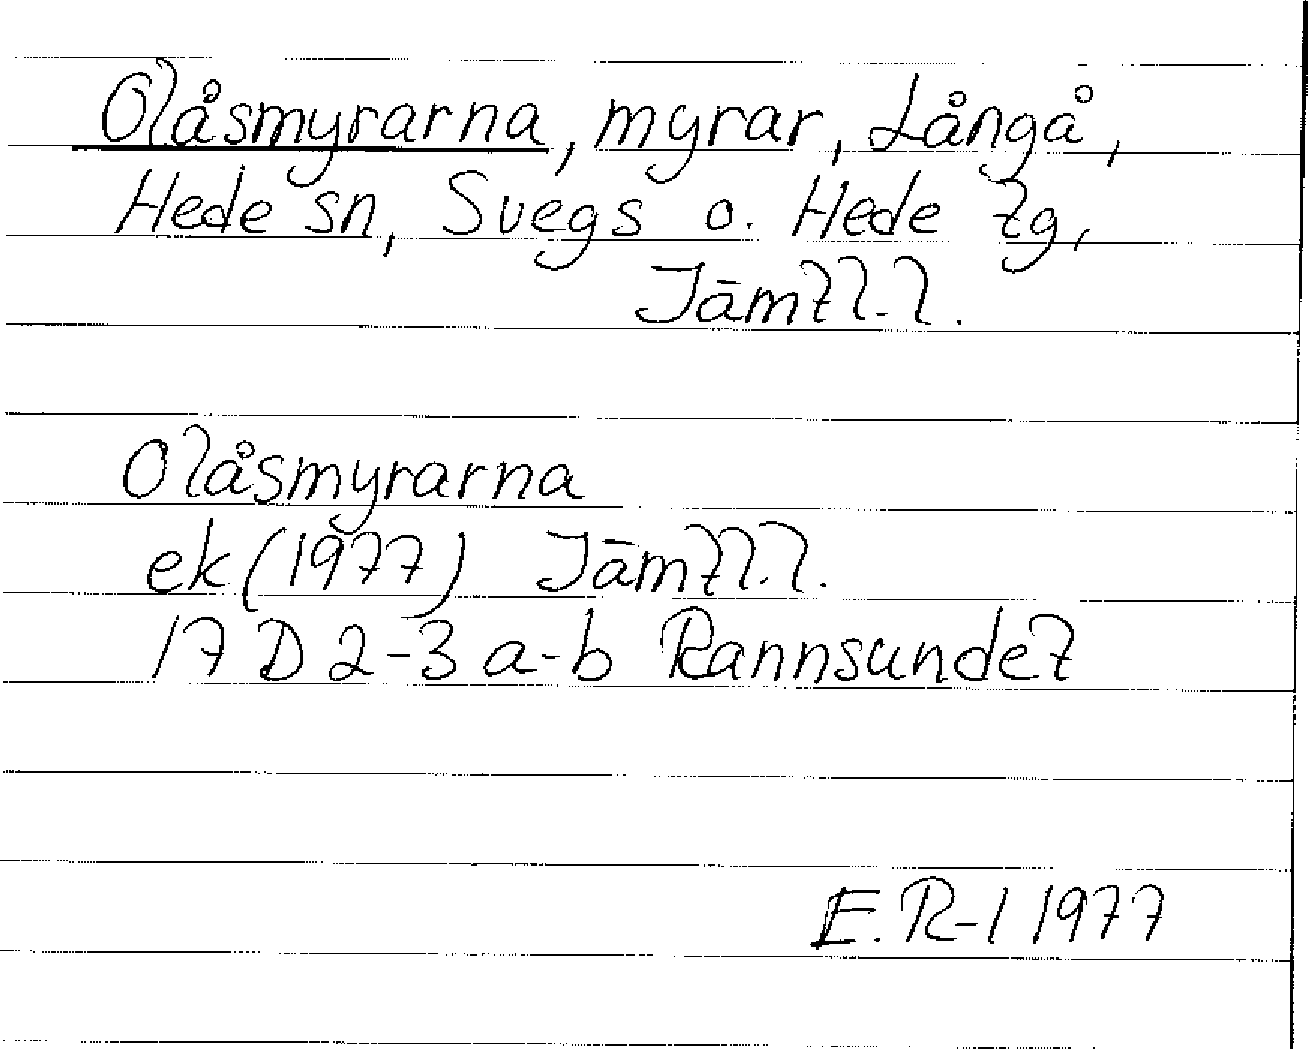 Olåsmyrarna, myrar, Långå,
Hede sn, Svegs o. Hede tg,
Jämtl.l.
Olåsmyrarna
ek (1977) Jämtl.l.
17 D 2-3 a-b Rannsundet
E.R-l 1977